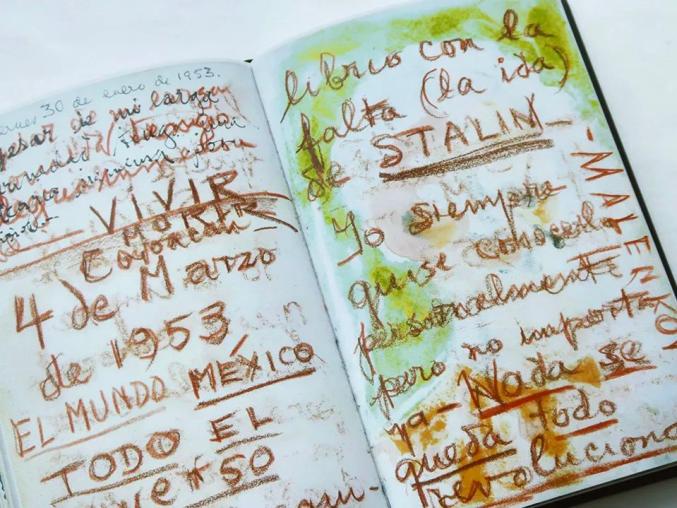 viernes 30 de enero de 1953.
pesar de mi larga
VIVIR
MORIR
Coyoacan—
4 de Marzo
de 1953
EL MUNDO MÉXICO
TODO EL
verso
librio con la
falta (la ida)
de STALIN—
Yo siempre
quise conocerlo
personalmente
pero no importa
ya— Nada se
queda todo
revoluciona
MALENKOV